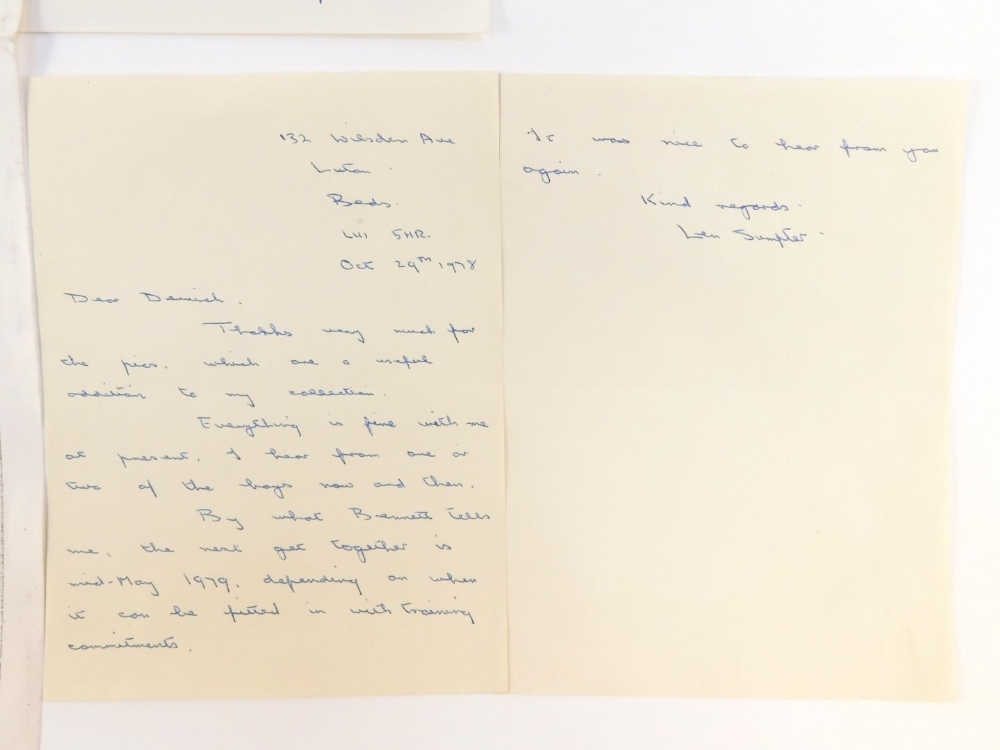 132 Wilsden Ave
Luton.
Beds.
LU1 5HR.
Oct 29TH 1978
Dear Derrick.
Thanks very much for
the pics. which are a useful
addition to my collection.
Everything is fine with me
at present. I hear from one or
two of the boys now and then.
By what Bennett tells
me, the next get together is
mid-May 1979, depending on when
it can be fitted in with training
commitments.
It was nice to hear from you
again.
Kind regards.
Len Sumpter.